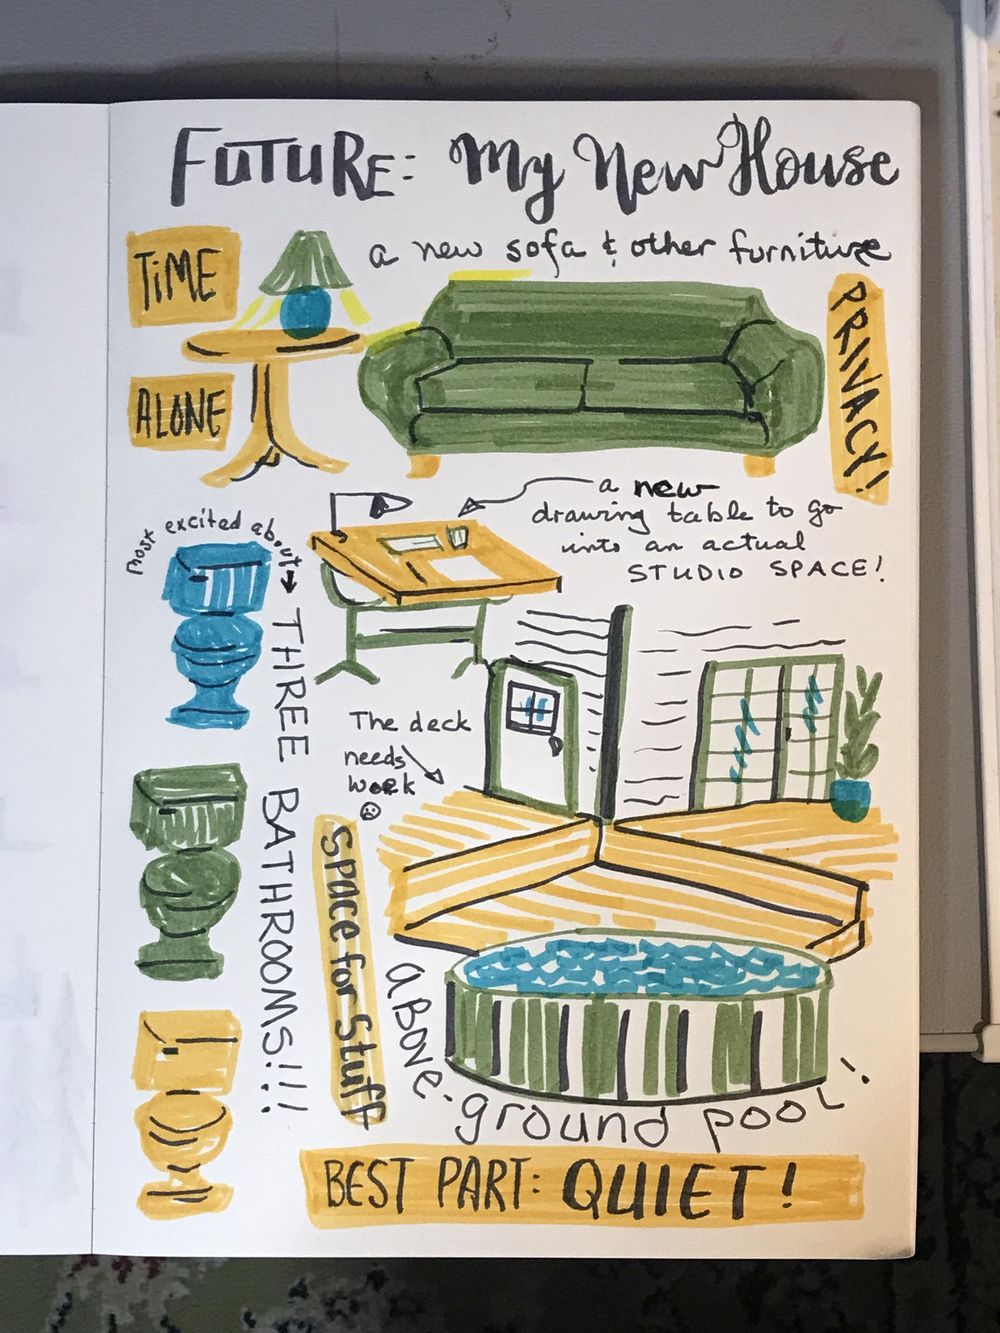 FUTURE: My New House
a new sofa & other furniture
TiME
ALONE
PRIVACY!
a new
drawing table to go
into an actual
STUDIO SPACE!
most excited about
THREE BATHROOMS!!!
The deck
needs
work
Space for Stuff
above-ground pool!
BEST PART: QUIET!